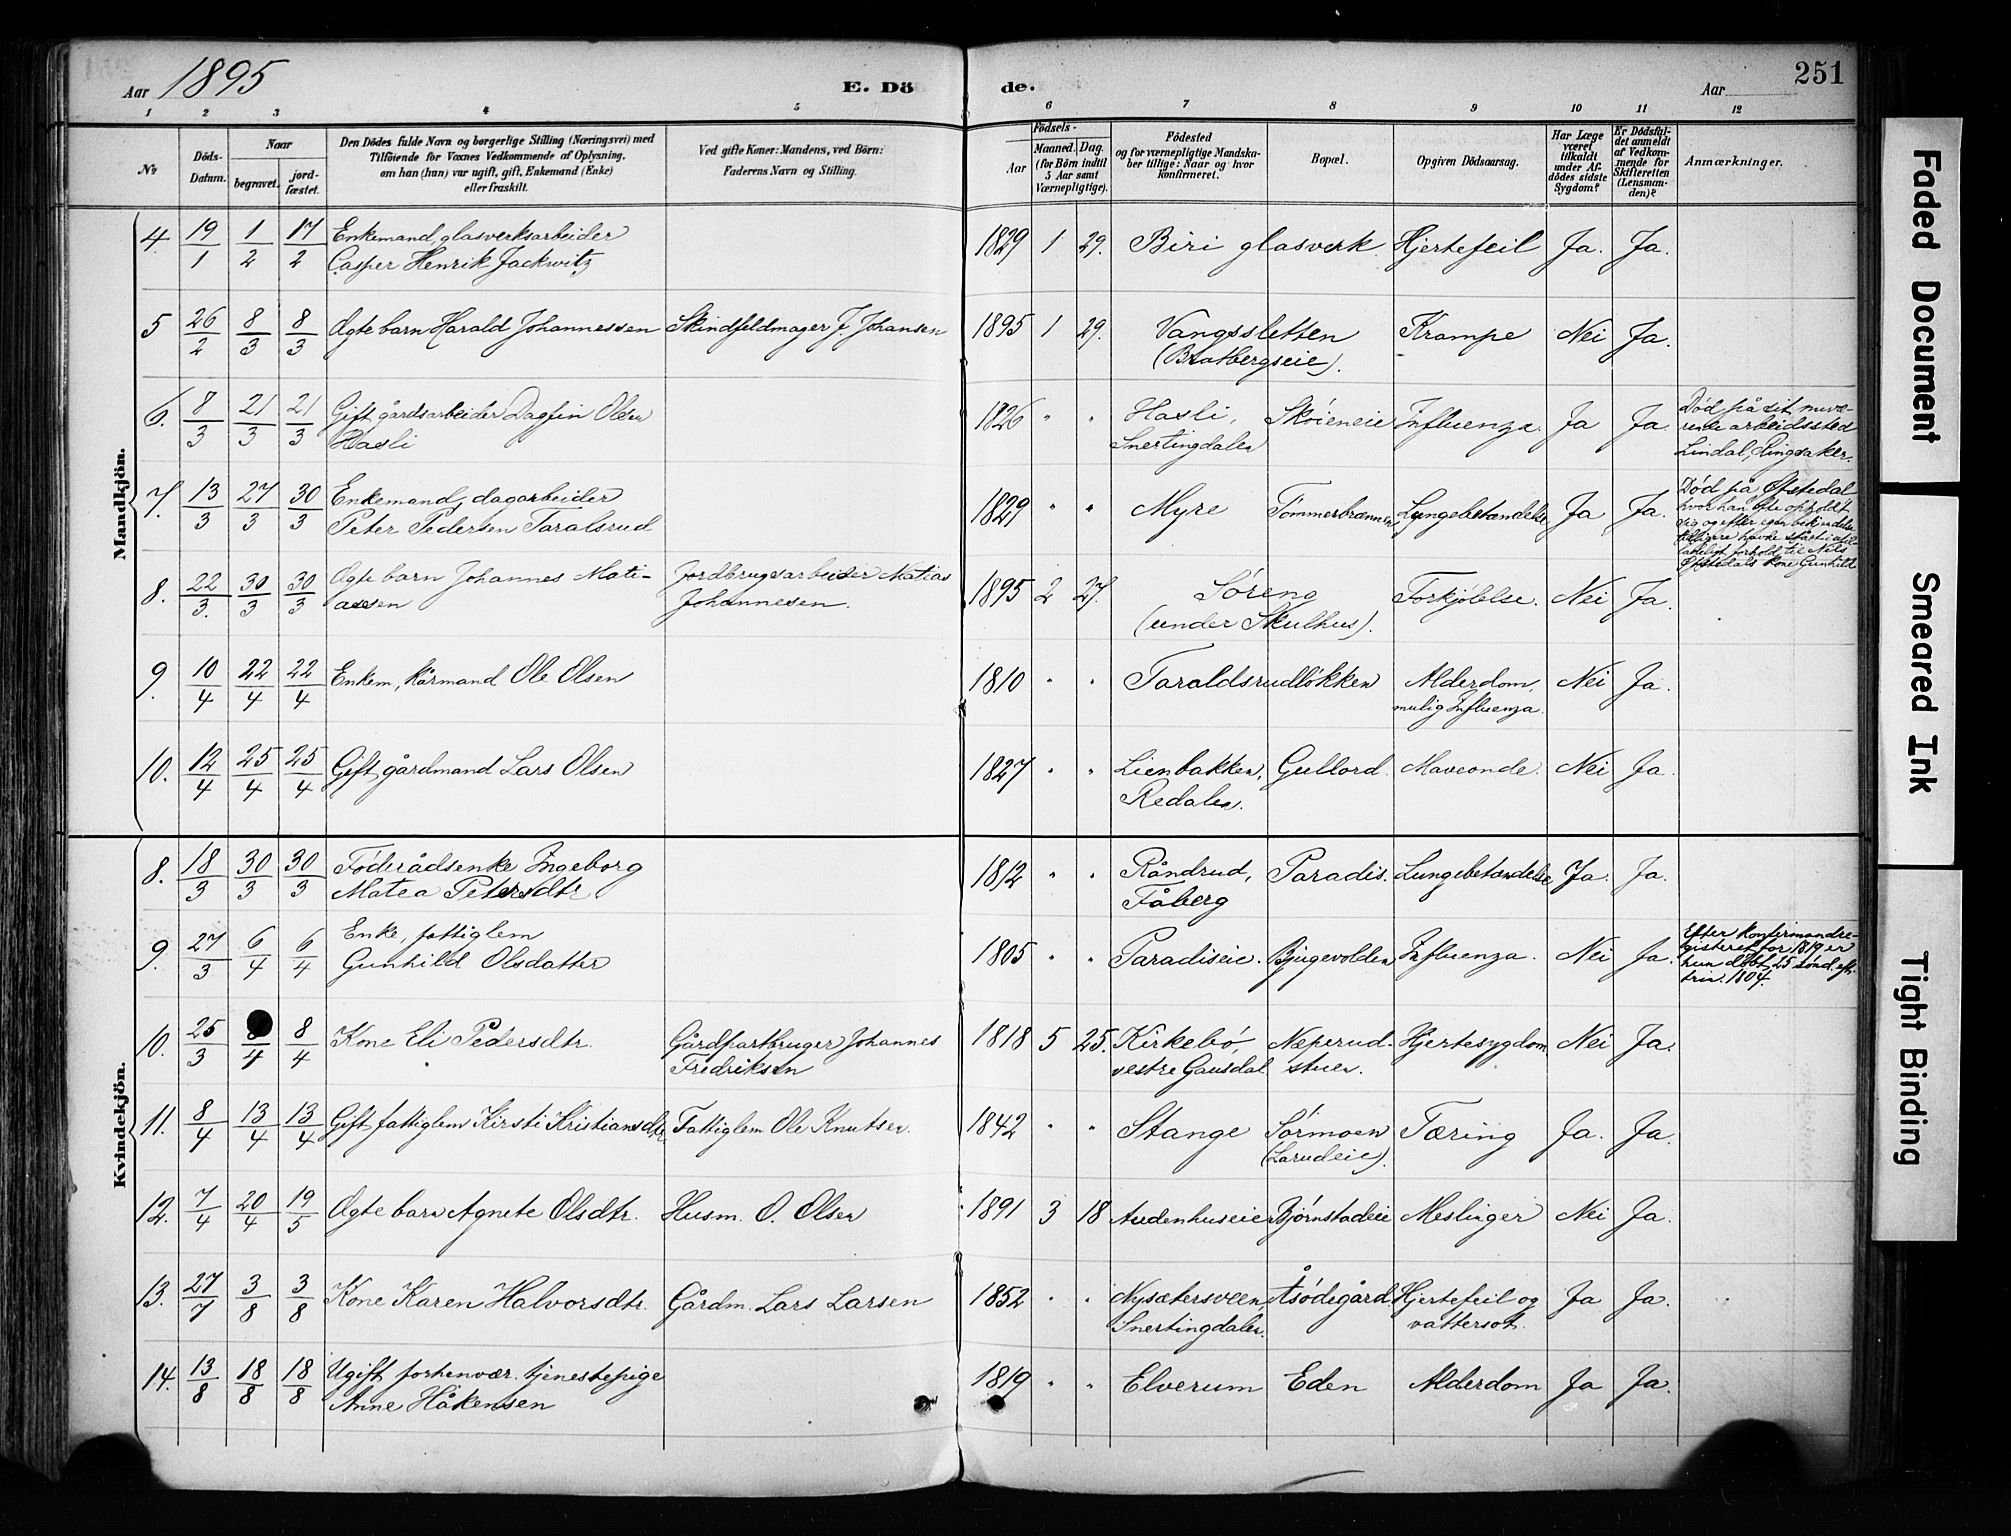 Aar 1895 E. Döde. Aar 251
1 2 3 4 5 6 7 8 9 10 11 12
№ Döds-Datum. Naar begravet. jord-fæstet. Den Dödes fulde Navn og borgerlige Stilling (Næringsvei) med Tilföiende for Voxnes Vedkommende af Oplysning, om han (hun) var ugift, gift, Enkemand (Enke) eller fraskilt. Ved gifte Koner: Mandens, ved Börn: Faderens Navn og Stilling. Födsels- Aar Maaned. Dag. (for Börn indtil 5 Aar samt Værnepligtige). Födested og for værnepligtige Mandskaber tillige: Naar og hvor konfirmeret. Bopæl. Opgiven Dödsaarsag. Har Læge været tilkaldt under Afdödes sidste Sygdom? Er Dödsfaldet anmeldt af Vedkommende for Skifteretten (Lensmanden)? Anmærkninger.
Mandkjön.
4. 19/1 1/2 17/2 Enkemand, glasverksarbeider Casper Henrik Jackwitz 1829 1 29. Biri glasverk. Hjertefeil Ja. Ja.
5 26/2 8/3 8/3 Ægte barn Harald Johannessen Skindfeldmager J. Johansen 1895 1 29. Vangssletten (Bratbergseie). Krampe Nei Ja.
6. 8/3 21/3 21/3 Gift gårdsarbeider Dagfin Olsen Hasli 1826 " " Hasli, Snertingdalen Skøieneie Influenza. Ja Ja. Død på sit nuværende arbeidssted Lindal, Ringsaker.
7. 13/3 27/3 30/3 Enkemand, dagarbeider Peter Pedersen Taralsrud 1829 " " Myre Tømmerbrænnen Lungebetændelse Ja Ja. Død på Øfstedal hvor han ofte opholdt sig og efter egen bekjendelse tidligere havde stået i utilladeligt forhold til Nels Øfstedals kone Gunhild
8. 22/3. 30/3 30/3 Ægte barn Johannes Matiassen Jordbrugsarbeider Matias Johannesen. 1895 2 27. Søreng (under Skulhus). Forkjølelse. Nei Ja.
9. 10/4 22/4 22/4 Enkem, kårmand Ole Olsen 1810 " " Taraldsrudløkken Alderdom, mulig Influenza. Nei Ja.
10. 12/4 25/4 25/4 Gift gårdmand Lars Olsen 1827 " " Lienbakken, Redalen. Gullord. Maveonde. Nei Ja.
Kvindekjön.
8. 18/3 30/3 30/3 Føderådsenke Ingeborg Matea Petersdtr. 1812 " " Råndrud, Fåberg Paradis. Lungebetændelse Ja. Ja.
9. 27/3 6/4 6/4 Enke, fattiglem Gunhild Olsdatter 1805 " " Paradiseie. Bjugevolden Influenza. Nei Ja. Efter konfirmandregisteret for 1819 er hun døbt 25 sønd. eft. trin. 1804.
10. 25/3 8/4 8/4 Kone Eli Pedersdtr. Gårdpartbruger Johannes Fredriksen 1818 5 25. Kirkebø, vestre Gausdal Næperudstuen. Hjertesygdom Nei Ja.
11. 8/4 13/4 13/4 Gift fattiglem Kirsti Kristiansdtr Fattiglem Ole Knutsen. 1842 " " Stange Sørmoen (Larudeie). Tæring Ja. Ja.
12. 7/4 20/4 19/5 Ægte barn Agnete Olsdtr. Husm. O. Olsen 1891 3 18 Audenhuseie Bjørnstadeie Meslinger Nei Ja.
13. 27/7 3/8 3/8 Kone Karen Halvorsdtr. Gårdm. Lars Larsen 1852 " " Nysætersveen, Snertingdalen. Åsødegård Hjertefeil og vattersot. Ja Ja.
14. 13/8 18/8 18/8 Ugift forhenvær. tjenestepige Anne Håkensen 1819 " " Elverum Eden Alderdom Ja Ja.
Faded Document
Smeared Ink
Tight Binding